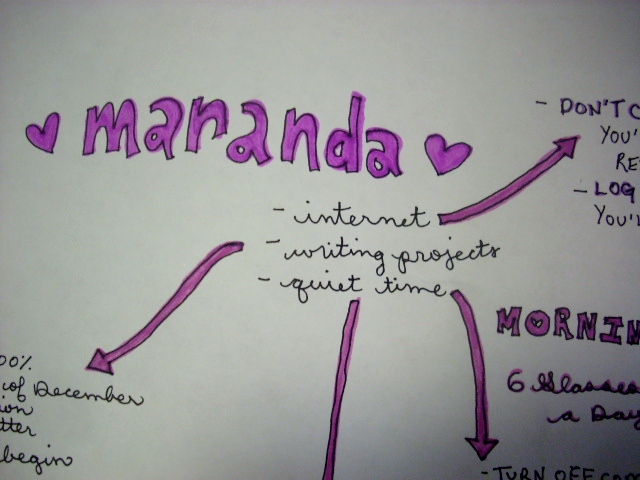 maranda
- internet
- writing projects
- quiet time
- DON'T
YOU'
RE
- LOG
YOU'
MORNIN
6 Glasses
a Day
00%
of December
ion
tter
begin
- TURN OFF